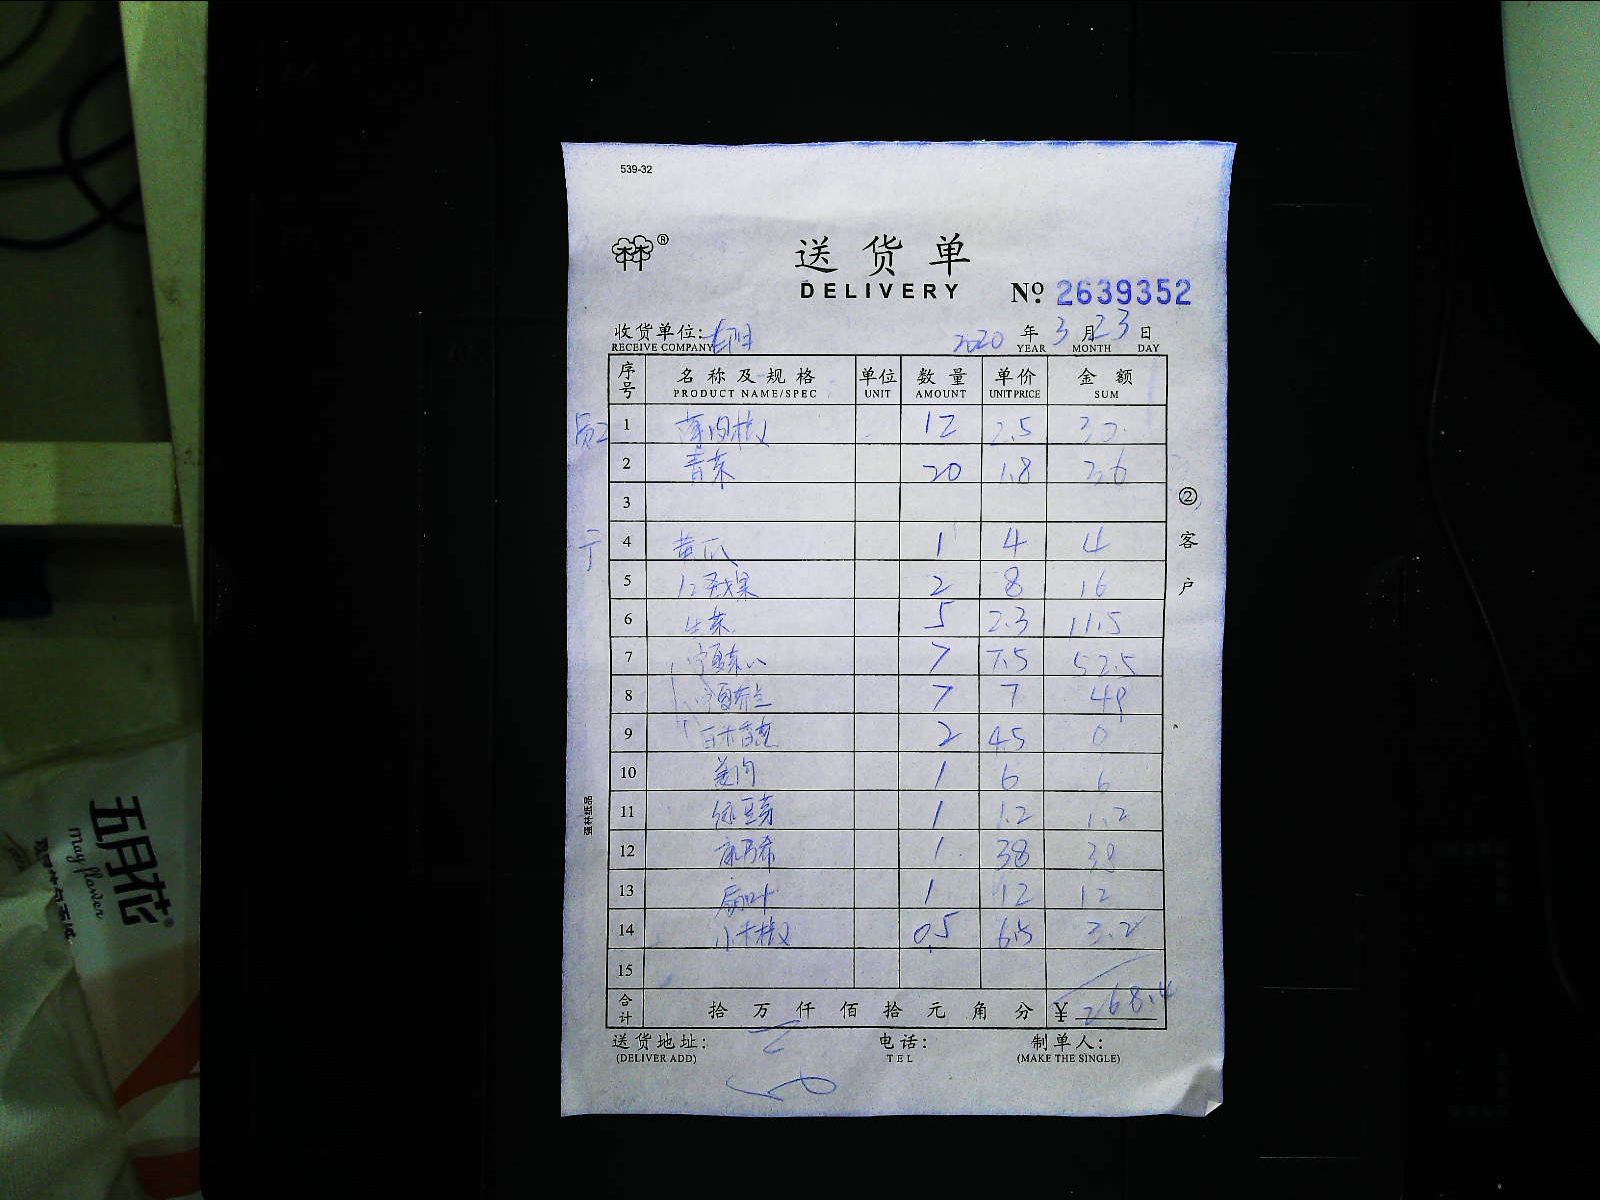 539-32
林®
送货单
DELIVERY
№ 2639352
收货单位:
RECEIVE COMPANY
2020 年 3 月 23 日
YEAR MONTH DAY
序号 名称及规格 单位 数量 单价 金额
PRODUCT NAME/SPEC UNIT AMOUNT UNIT PRICE SUM
1 薄肉椒 12 2.5 30
2 青菜 20 1.8 36
3
4 黄瓜 1 4 4
5 2 8 16
6 生菜 5 2.3 11.5
7 宁夏菜心 7 7.5 52.5
8 宁夏芥兰 7 7 49
9 2 4.5
10 1 6 6
11 绿豆芽 1 1.2 1.2
12 1 38 38
13 1 12 12
14 小米椒 0.5 6.5 3.2
15
合计 拾万仟佰拾元角分 ¥ 268.4
送货地址: 电话: 制单人:
(DELIVER ADD) TEL (MAKE THE SINGLE)
②客户
强林纸品
五月花®
mayflower